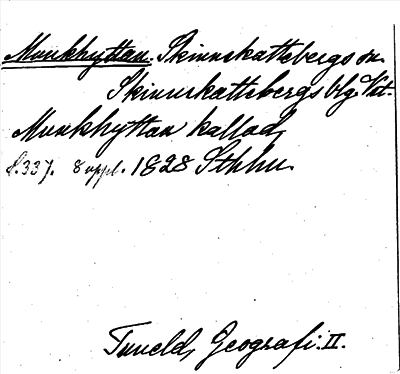 Munkhyttan. Skinnskattebergs sn.
Skinnskattebergs blg. Vstm.
Munkhyttan kallad,
s. 337. 8 uppl. 1828 Sthlm.
Tuneld, Geografi. II.